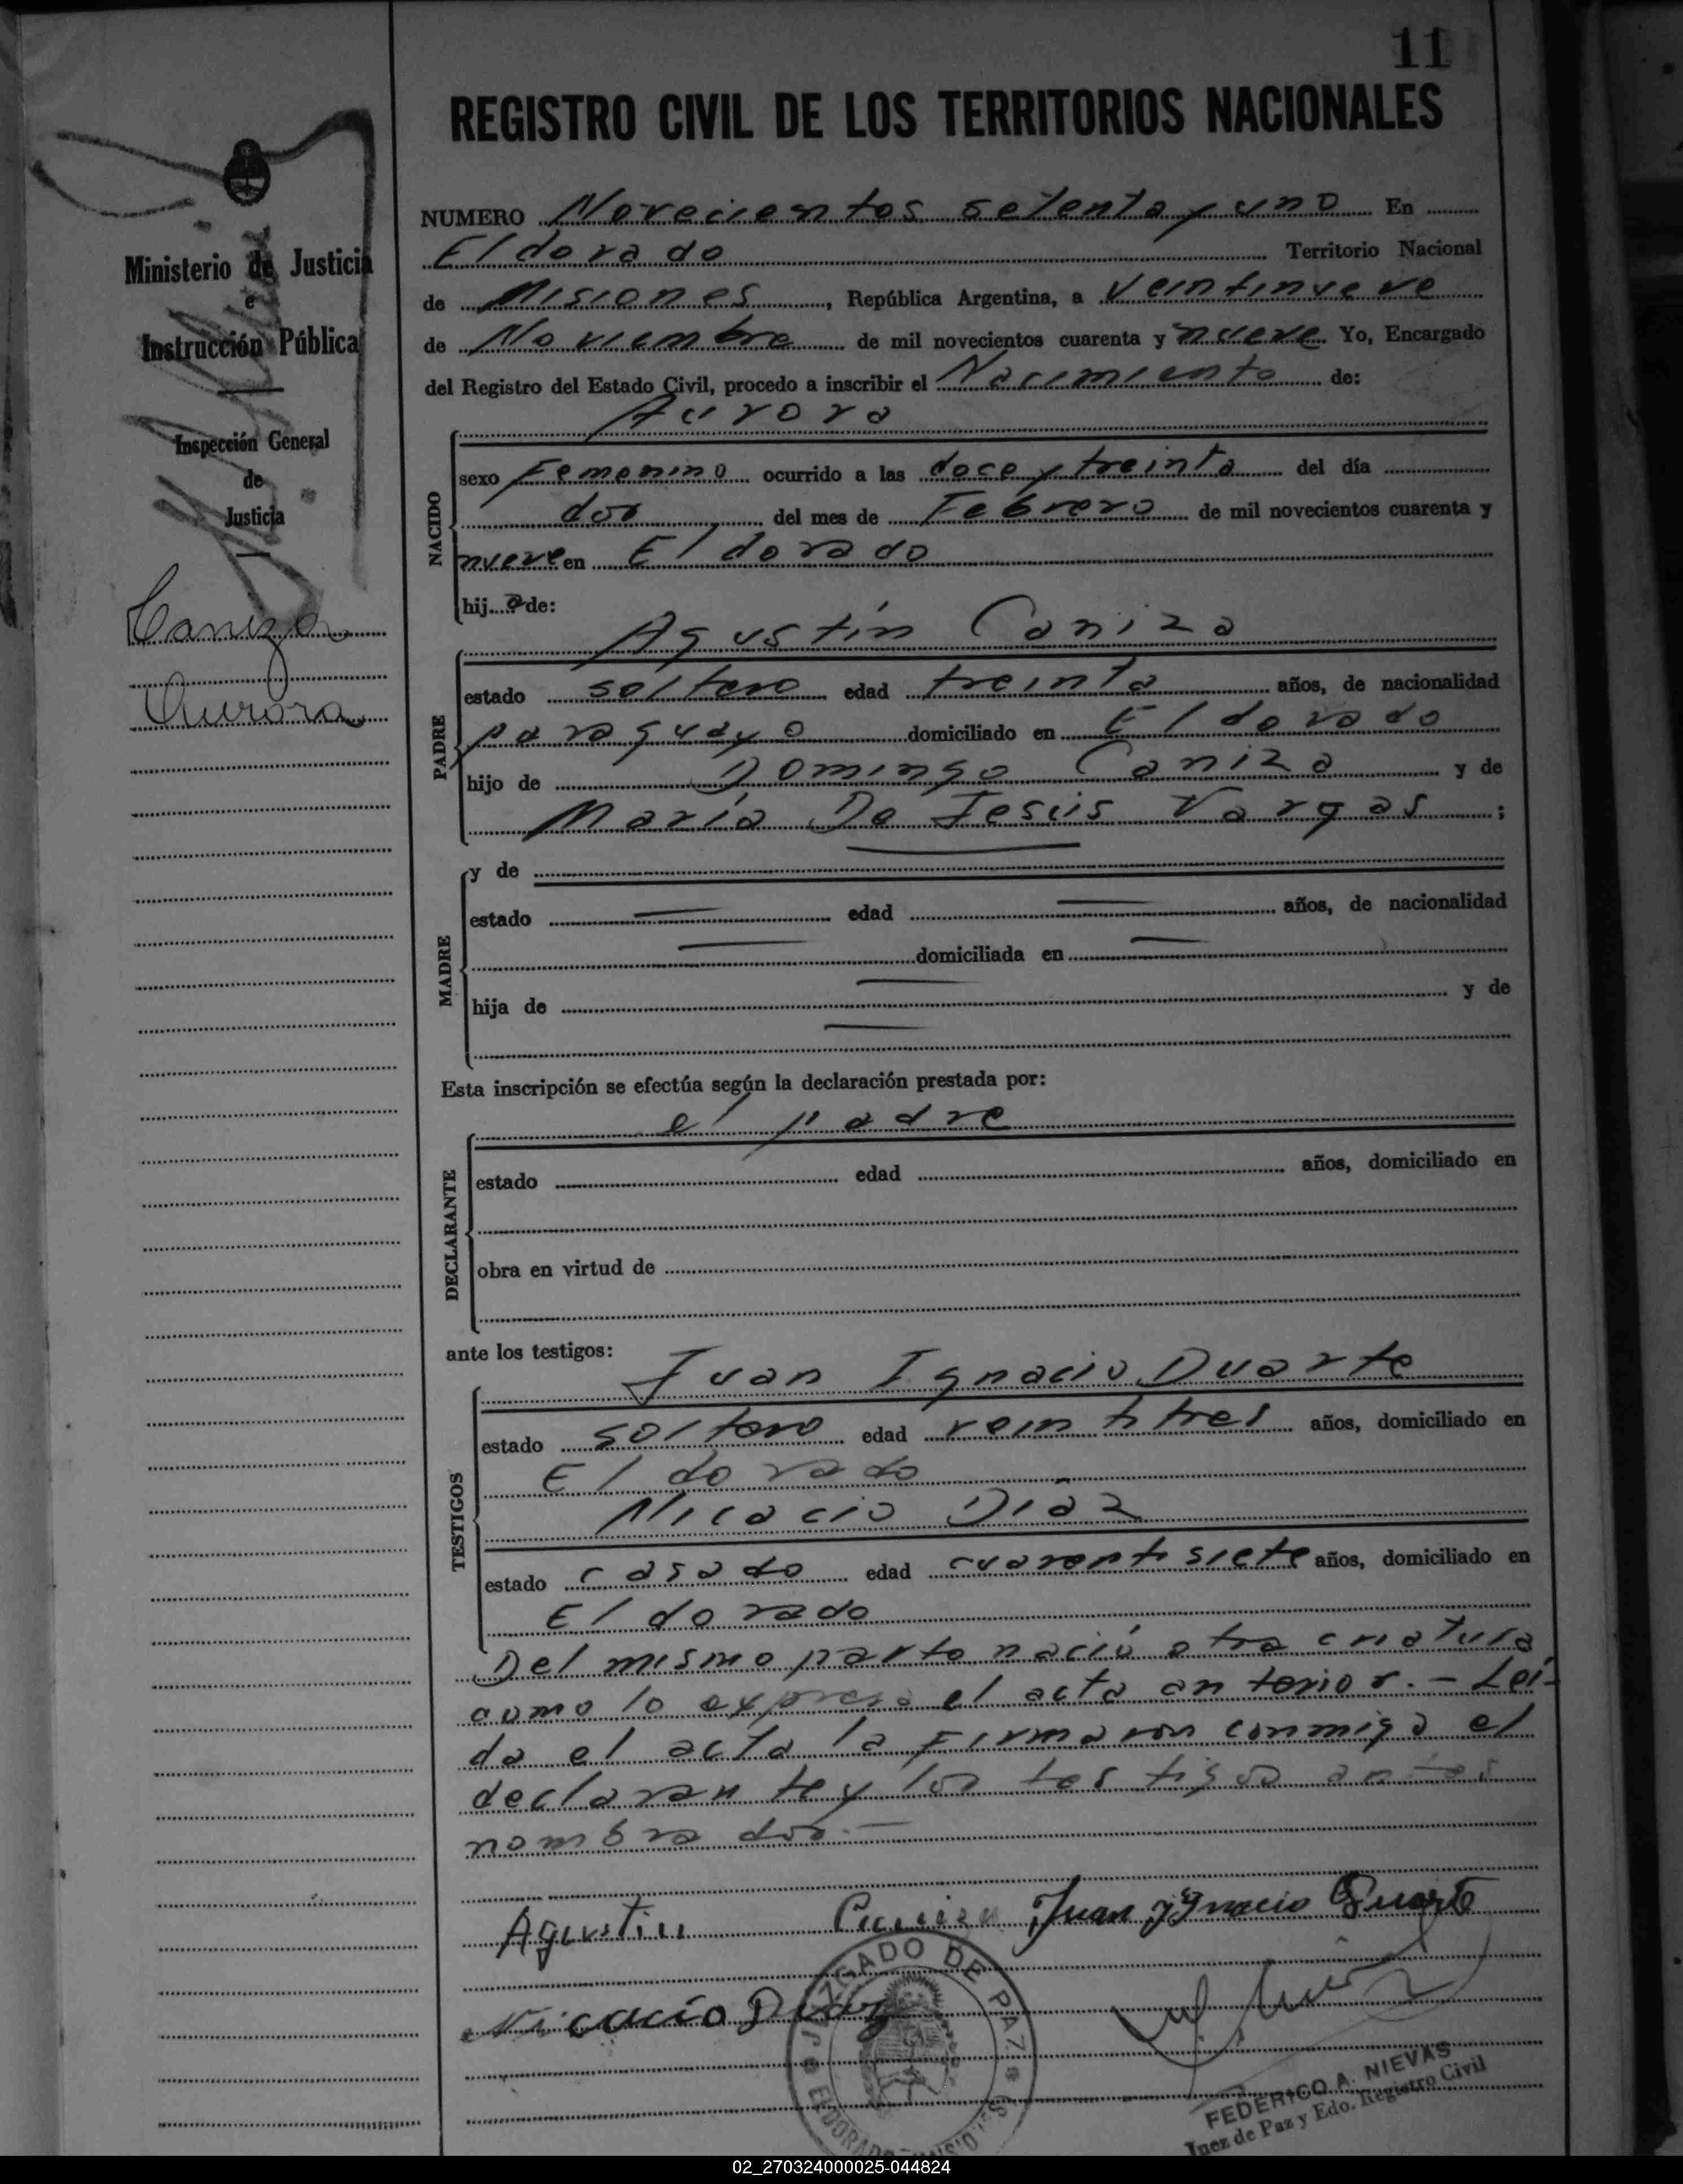 11
REGISTRO CIVIL DE LOS TERRITORIOS NACIONALES
Ministerio de Justicia
e
Instrucción Pública
Inspección General
de
Justicia
Caniza
Aurora
NUMERO Novecientos setenta y uno En
Eldorado Territorio Nacional
de Misiones, República Argentina, a Veintinueve
de Noviembre de mil novecientos cuarenta y nueve Yo, Encargado
del Registro del Estado Civil, procedo a inscribir el Nacimiento de:
Aurora
NACIDO
sexo Femenino ocurrido a las doce y treinta del día
dos del mes de Febrero de mil novecientos cuarenta y
nueve en Eldorado
hija de:
Agustín Caniza
PADRE
estado soltero edad treinta años, de nacionalidad
paraguayo domiciliado en Eldorado
hijo de Domingo Caniza y de
María De Jesús Vargas ;
MADRE
y de
estado — edad — años, de nacionalidad
— domiciliada en —
hija de — y de
—
Esta inscripción se efectúa según la declaración prestada por:
el padre
DECLARANTE
estado edad años, domiciliado en
obra en virtud de
ante los testigos:
Juan Ignacio Duarte
TESTIGOS
estado soltero edad veintitres años, domiciliado en
Eldorado
Nicacio Diaz
estado casado edad cuarentisiete años, domiciliado en
Eldorado
Del mismo parto nació otra criatura
como lo expresa el acta anterior.- Leí-
da el acta la Firmaron conmigo el
declarante y los testigos antes
nombrados.-
Agustin Caniza Juan Ygnacio Duarte
Nicacio Diaz
JUZGADO DE PAZ
ELDORADO MISIONES
FEDERICO A. NIEVAS
Juez de Paz y Edo. Registro Civil
02_270324000025-044824